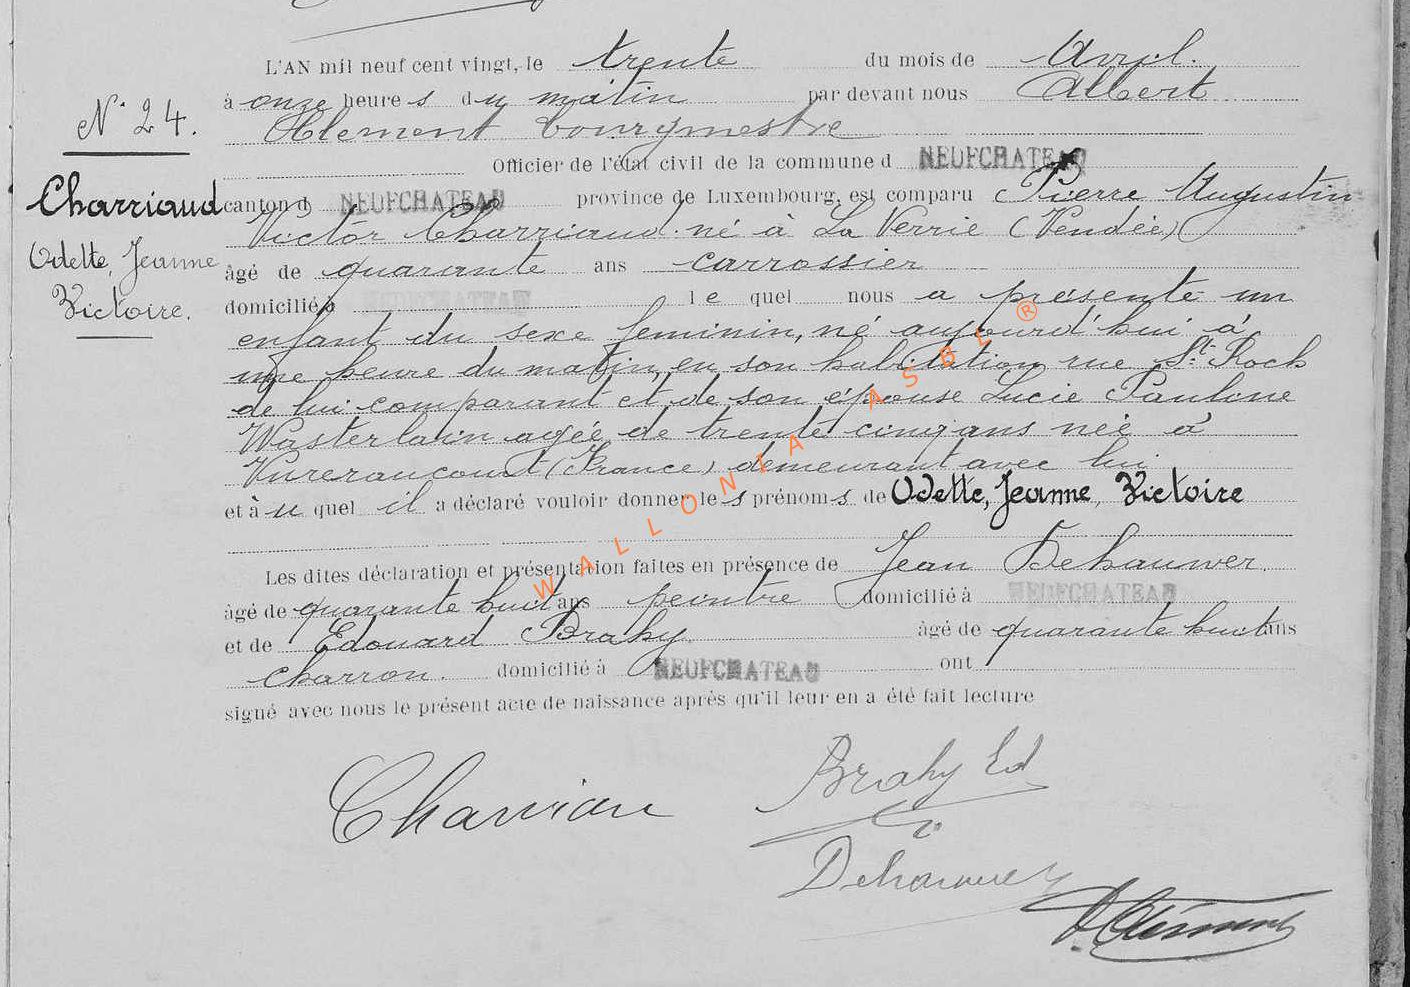 L'AN mil neuf cent vingt, le trente du mois de Avril.
à onze heures du matin par devant nous Albert
N° 24.
Clement bourgmestre
Officier de l'état civil de la commune d NEUFCHATEAU
Charriaud
canton d NEUFCHATEAU province de Luxembourg, est comparu Pierre Augustin
Victor Charriaud né à La Verrie (Vendée)
Odette, Jeanne
Victoire.
âgé de quarante ans carrossier
domicilié à NEUFCHATEAU le quel nous a présenté un
enfant du sexe feminin, né aujourd'hui à
une heure du matin, en son habitation rue St. Roch
de lui comparant et de son épouse Lucie Pauline
Wasterlain agée de trente cinq ans née à
(France) demeurant avec lui
et à u quel il a déclaré vouloir donner les prénoms de Odette, Jeanne, Victoire
Les dites déclaration et présentation faites en présence de Jean Dehauwer.
âgé de quarante huit ans peintre domicilié à NEUFCHATEAU
et de Edouard Brahy. âgé de quarante huit ans
charron. domicilié à NEUFCHATEAU ont
signé avec nous le présent acte de naissance après qu'il leur en a été fait lecture
Charriau
Brahy Ed
Dehauwer
AClément
WALLONIA ASBL ®